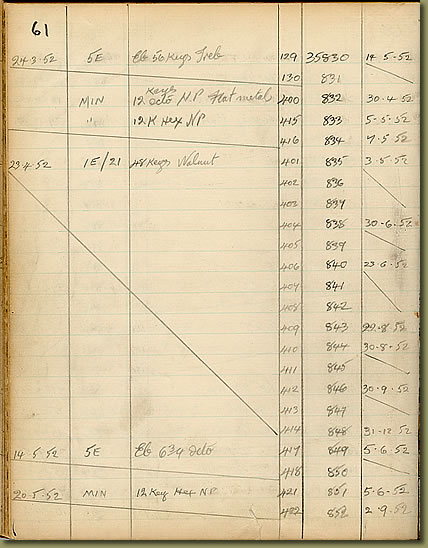 61
24.3.52 5E Eb 56 Keys Treb 129 35830 14.5.52
130 831
MIN 12 keys Octo N.P Flat metal 400 832 30.4.52
" 12 K Hex NP 415 833 5.5.52
416 834 7.5.52
23.4.52 1E/21 48 Keys Walnut 401 835 3.5.52
402 836
403 837
404 838 30.6.52
405 839
406 840 23.6.52
407 841
408 842
409 843 29.8.52
410 844 30.8.52
411 845
412 846 30.9.52
413 847
414 848 31.12.52
14.5.52 5E Eb 63y Octo 417 849 5.6.52
418 850
20.5.52 MIN 12 Key Hex NP 421 851 5.6.52
422 852 2.9.52